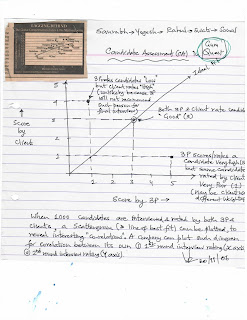 LAGGING BEHIND
Saurabh - Yogesh - Rahul - Sanat - Sonal
Candidate Assessment (CA)
Guru Quest
Ideal
3P rates candidates "Low"
but client rates "High"
(unlikely because 3P
will not recommend
such person for
final interview)
Both 3P & Client rate candidate
"Good"
5
4
3
2
1
Score
by
Client
3P scores/rates a
candidate Very high (5)
but same candidate
rated by client
Very Poor (1)
(may be client has
different weightage
1 2 3 4 5
Score by 3P →
When 1000 candidates are interviewed & rated by both 3P &
clients, a Scattergram (& line of best fit) can be plotted to
reveal interesting "correlations". A Company can plot such diagram
for correlation between its own ① 1st round interview rating (X axis)
② 2nd round interview rating (Y axis).